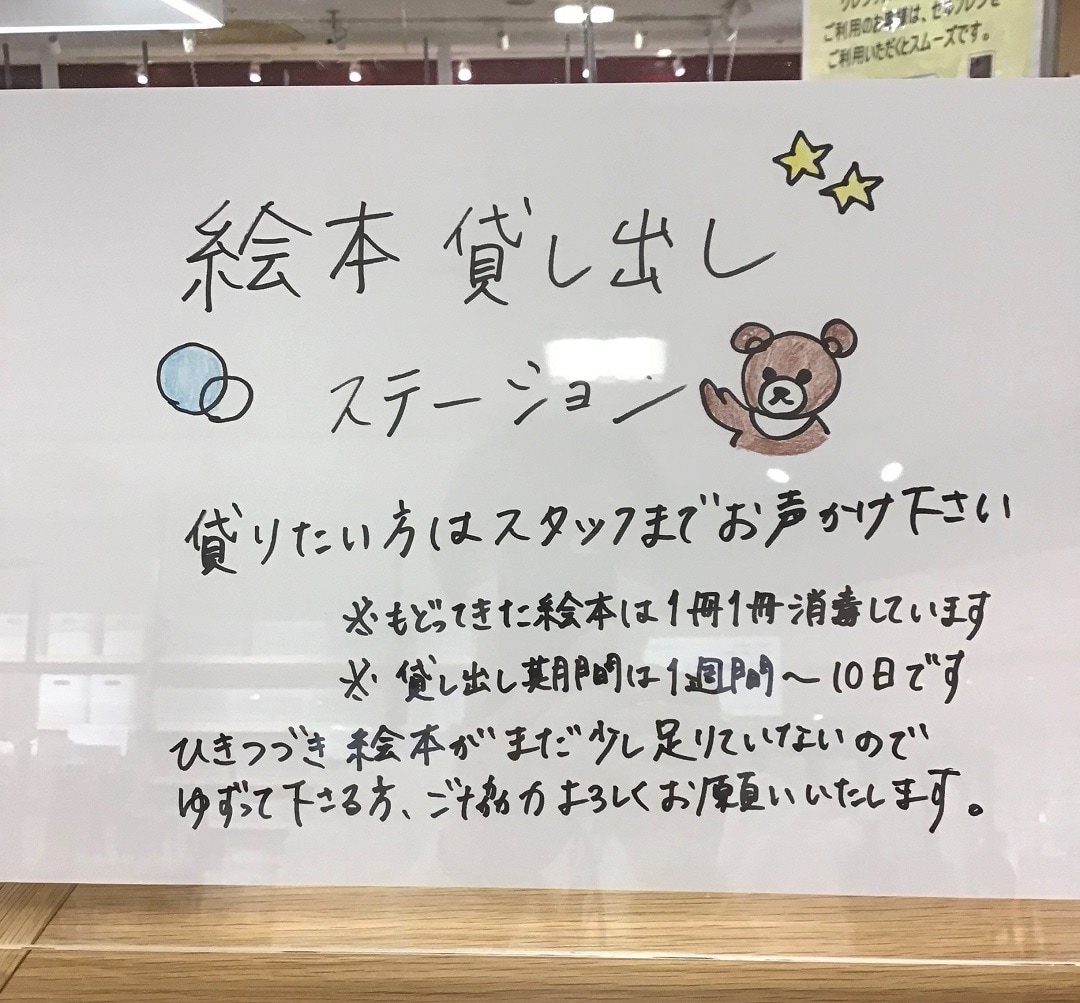 ご利用のお客様は、セルフレジを
ご利用いただくとスムーズです。
絵本 貸し出し
ステーション
貸りたい方はスタッフまでお声かけ下さい
※もどってきた絵本は1冊1冊消毒しています
※ 貸し出し期間は1週間〜10日です
ひきつづき絵本がまだ少し足りていないので
ゆずって下さる方、ご協力よろしくお願いいたします。